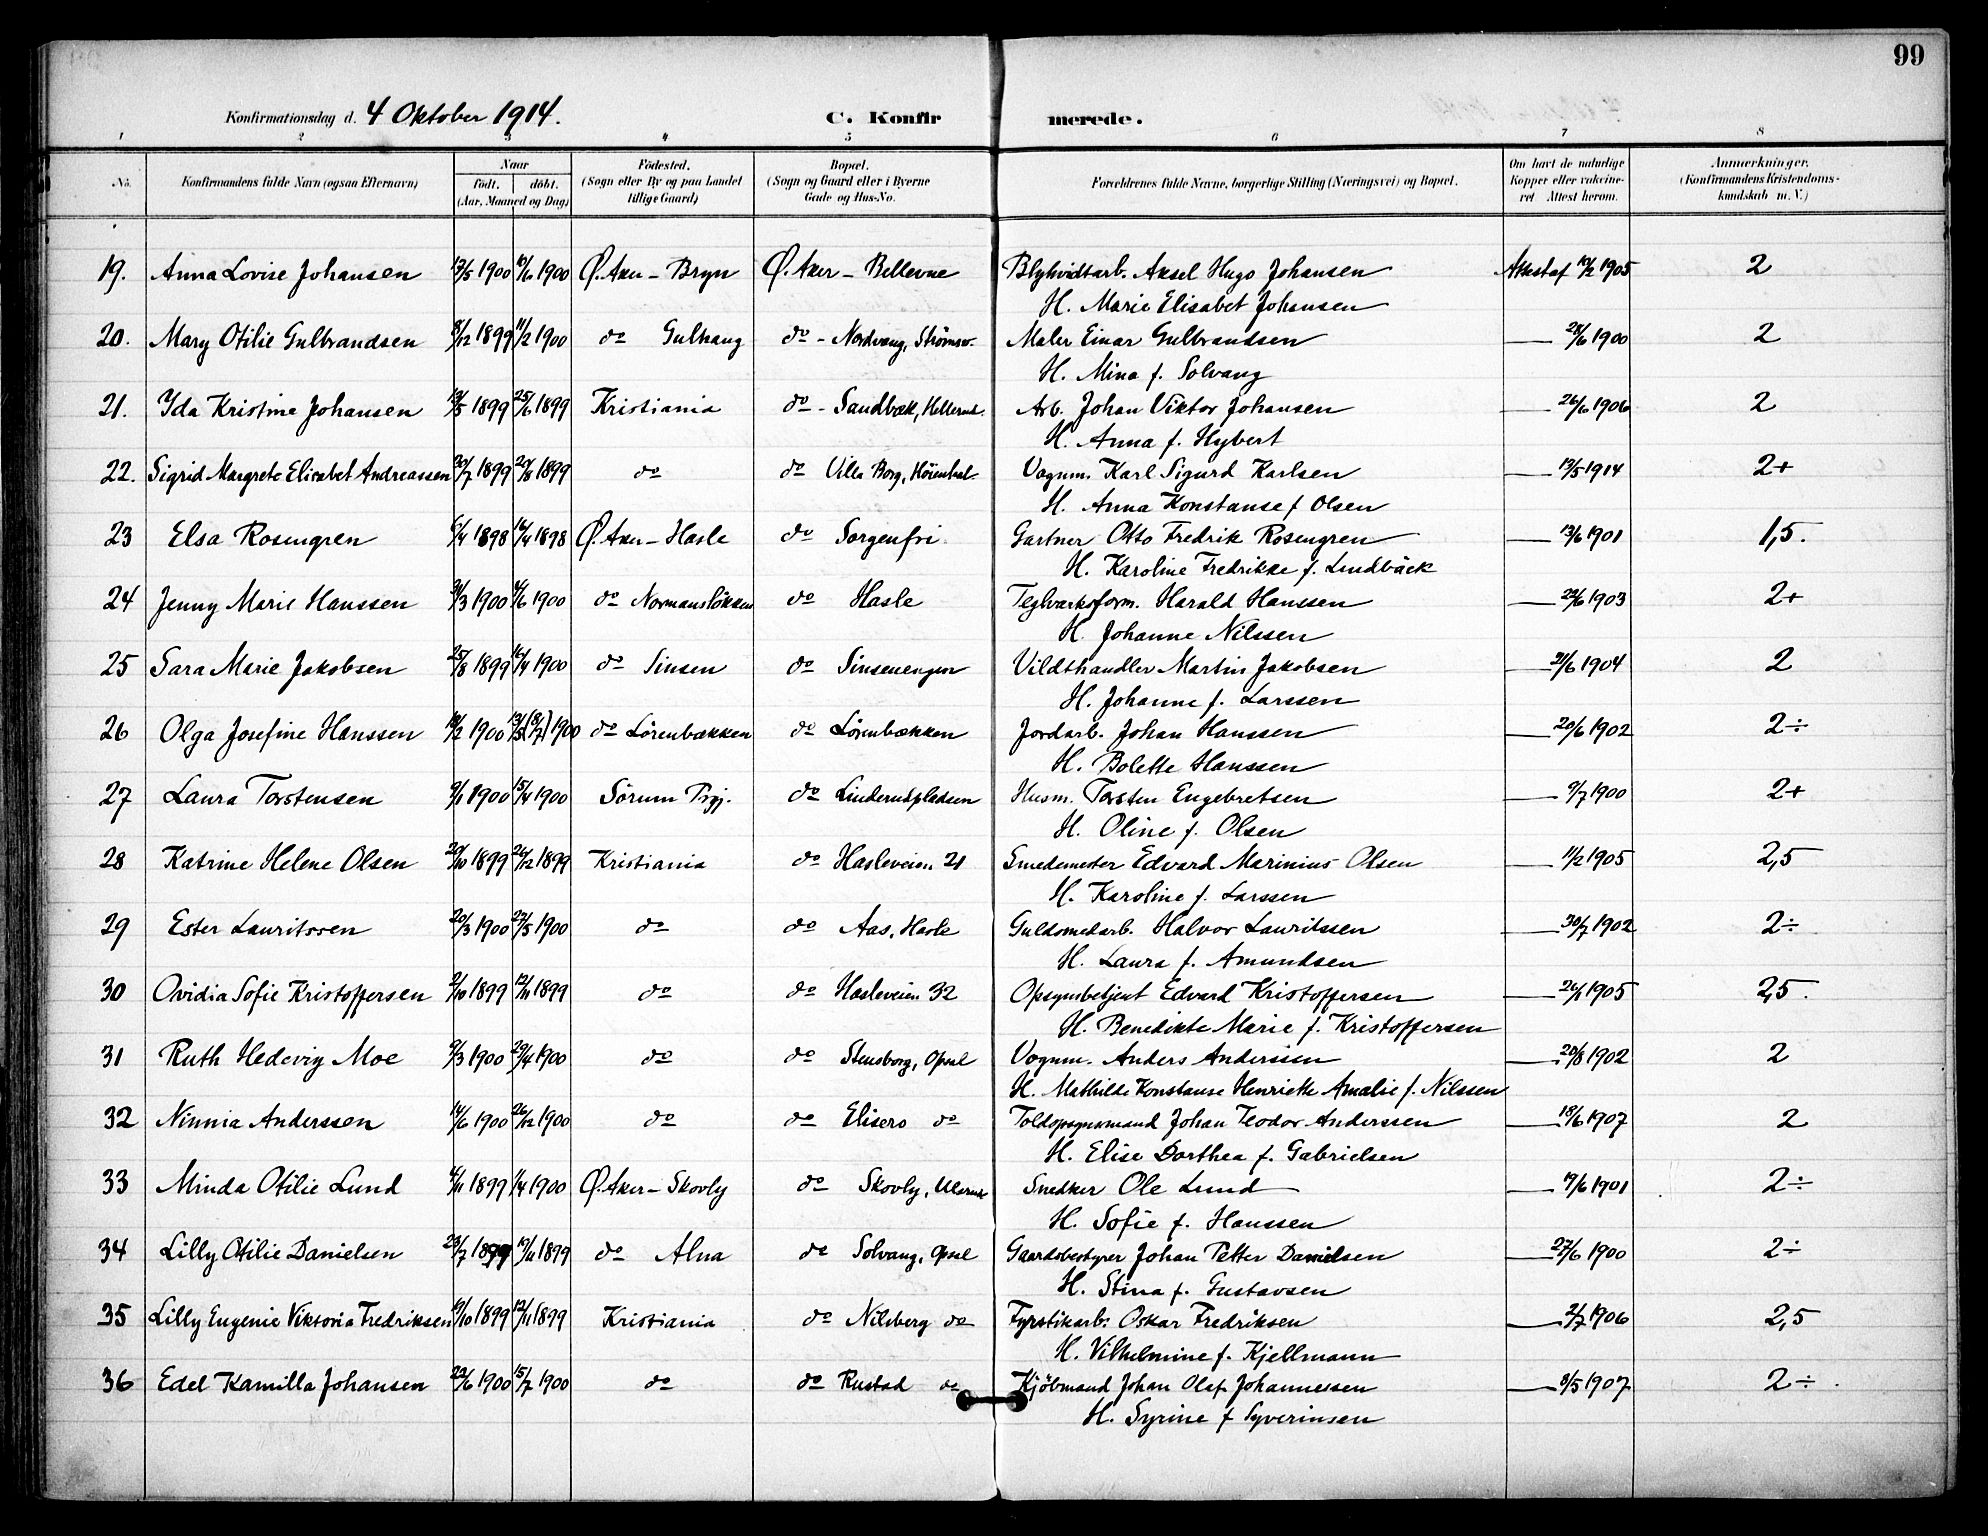 99
Konfirmationsdag d. 4 Oktober 1914. C. Konfir merede.
1 2 3 4 5 6 7 8
No. Konfirmandens fulde Navn (ogsaa Efternavn) Naar födt. döbt. (Aar, Maaned og Dag) Födested. (Sogn eller By og paa Landet tillige Gaard) Bopæl. (Sogn og Gaard eller i Byerne Gade og Hus-No. Forældrenes fulde Navne, borgerlige Stilling (Næringsvei) og Bopæl. Om havt de naturlige Kopper eller vakcineret Attest herom. Anmærkninger. (Konfirmandens Kristendomskundskab m. V.)
19. Anna Lovise Johansen 1900 1900 Ø. Aker – Bryn Ø. Aker – Bellevue Blyhvidtarb. Aksel Hugo Johansen 1905 2
H. Marie Elisabet Johansen
20. Mary Otilie Gulbrandsen 1899 11/2 1900 do Gulhaug do - Nordvang, Maler Einar Gulbrandsen — 28/6 1900 2
H. Mina f. Solvang
21. Ida Kristine Johansen 1899 25/6 1899 Kristiania do - Sandbæk, Hellerud. Arb. Johan Viktor Johansen — 26/6 1906 2
H. Anna f. Hybert
22. Sigrid Margrete Elisabet Andreassen 20/7 1899 1899 do do Villa Borg, Vognm. Karl Sigurd Karlsen — 13/5 1914 2+
H. Anna Konstanse f Olsen
23 Elsa Rosengren 1898 1898 Ø. Aker – Hasle do Sorgenfri Gartner Otto Fredrik Rosengren — 13/6 1901 1,5.
H. Karoline Fredrikke f. Lindbäck
24 Jenny Marie Hanssen 1900 1900 do Normansløkken do Hasle Teglværksform. Harald Hanssen — 22/6 1903 2+
H. Johanne Nilssen
25 Sara Marie Jakobsen 25/8 1899 16/4 1900 do Sinsen do Sinsenengen Vildthandler Martin Jakobsen — 1904 2
H. Johanne f. Larssen
26 Olga Josefine Hanssen 1900 1900 do Lörenbækken do Lörenbækken Jordarb. Johan Hanssen — 20/6 1902 2÷
H. Bolette Hanssen
27 Laura Torstensen 1900 15/4 1900 Sörum Prgj. do Linderudpladsen Husm. Torsten Engebretsen — 9/7 1900 2+
H. Oline f. Olsen
28 Katrine Helene Olsen 20/10 1899 26/12 1899 Kristiania do Hasleveien 21 Smedemester Edvard Marinius Olsen — 11/2 1905 2,5
H. Karoline f. Larssen
29 Ester Lauritssen 20/3 1900 27/5 1900 do do Aas, Hasle Guldsmedarb. Halvor Lauritssen — 30/7 1902 2÷
H. Laura f. Amundsen
30 Ovidia Sofie Kristoffersen 2/10 1899 12/11 1899 do do Hasleveien 32 Opsynbetjent Edvard Kristoffersen — 1905 2,5.
H. Benedikte Marie f. Kristoffersen
31 Ruth Hedevig Moe 9/3 1900 29/4 1900 do do Stensborg, Opsal Vognm. Anders Anderssen — 20/8 1902 2
H. Mathilde Konstanse Henriette Amalie f. Nilssen
32 Ninnia Anderssen 14/6 1900 26/12 1900 do do Elisero do Toldopsynsmand Johan Teodor Anderssen — 18/6 1907 2
H. Elise Dorthea f. Gabrielsen
33 Minda Otilie Lund 4/11 1899 1/4 1900 Ø. Aker – Skovly do Skovly, Ulsrud Snedker Ole Lund — 1901 2÷
H. Sofie f. Hanssen
34 Lilly Otilie Danielsen 23/7 1899 19/11 1899 do Alna do Solvang, Opsal Gaardsbestyrer Johan Petter Danielsen — 27/6 1900 2÷
H. Stina f. Gustavsen
35 Lilly Eugenie Viktoria Fredriksen 19/10 1899 12/11 1899 Kristiania do Nilsberg do Fyrstikarb. Oskar Fredriksen — 2/7 1906 2,5
H. Vilhelmine f. Kjellmann
36 Edel Kamilla Johansen 22/6 1900 15/7 1900 do do Rustad do Kjöbmand Johan Olaf Johannessen — 8/5 1907 2÷
H. Syrine f Syverinsen